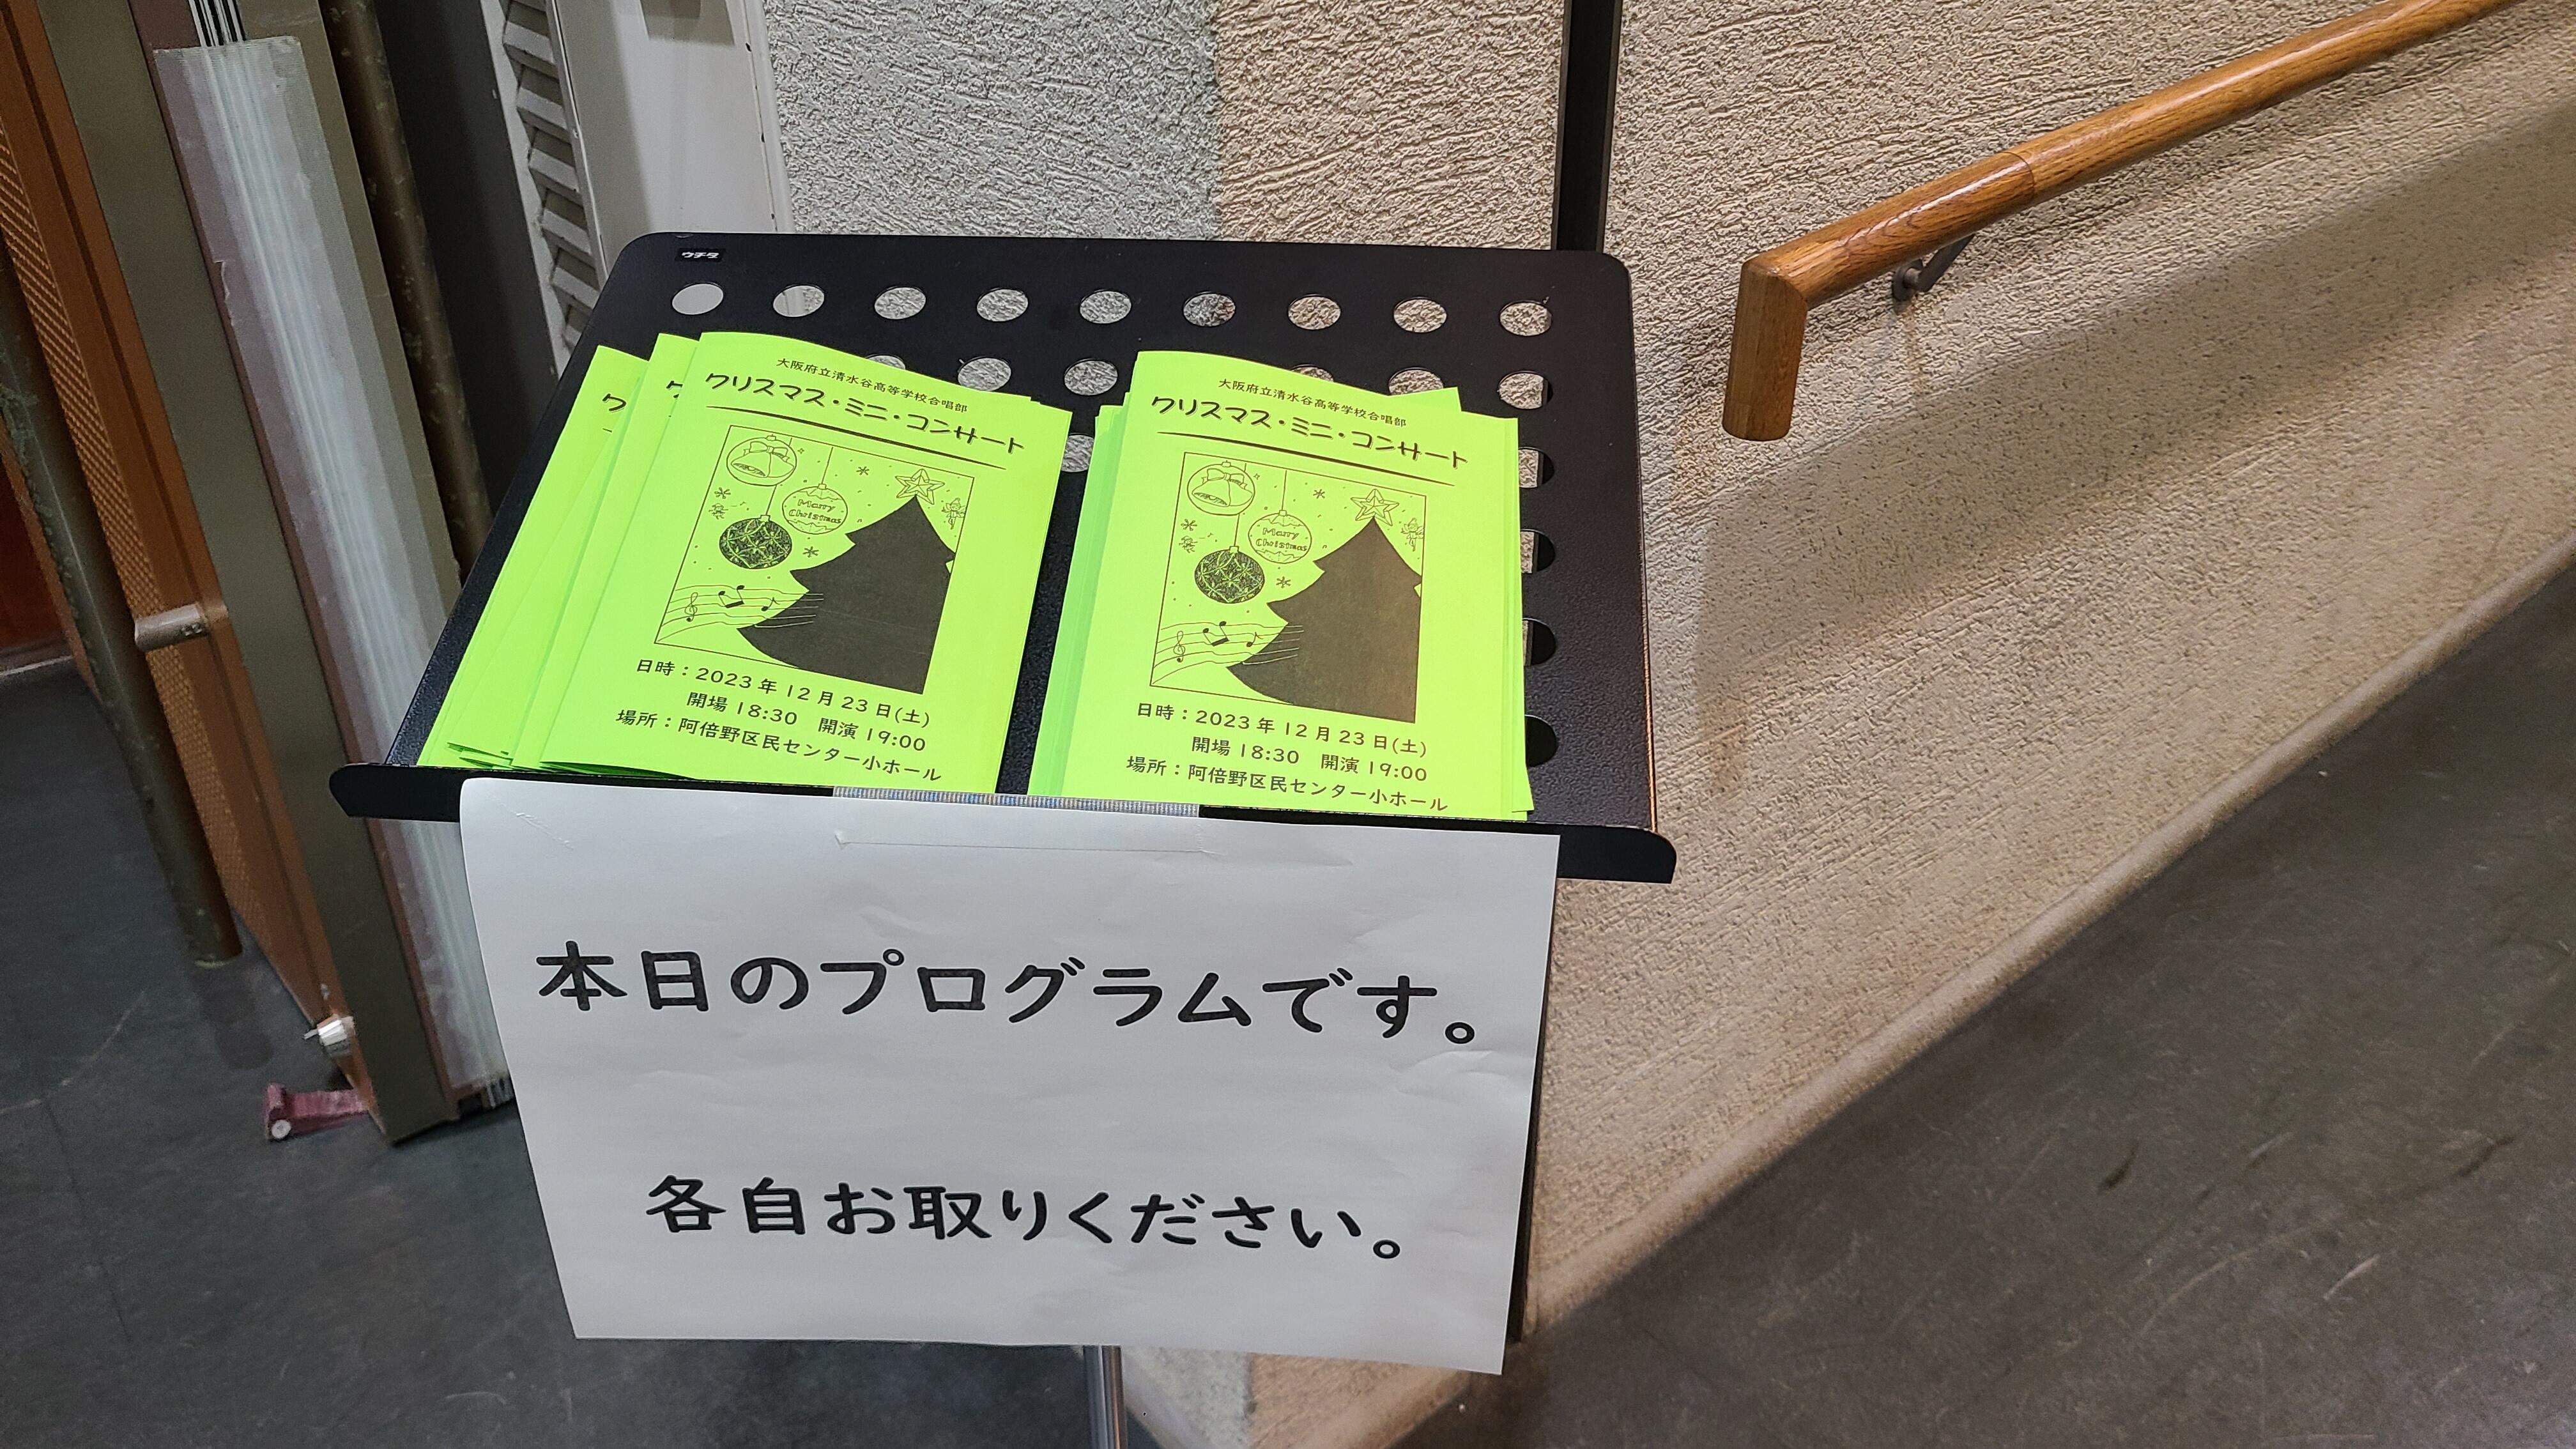 ウチダ
ク
ク
大阪府立清水谷高等学校合唱部
クリスマス・ミニ・コンサート
Marry
Christmas
日時：2023年12月23日(土)
開場18:30 開演19:00
場所：阿倍野区民センター小ホール
大阪府立清水谷高等学校合唱部
クリスマス・ミニ・コンサート
Marry
Christmas
日時：2023年12月23日(土)
開場18:30 開演19:00
場所：阿倍野区民センター小ホール
本日のプログラムです。
各自お取りください。